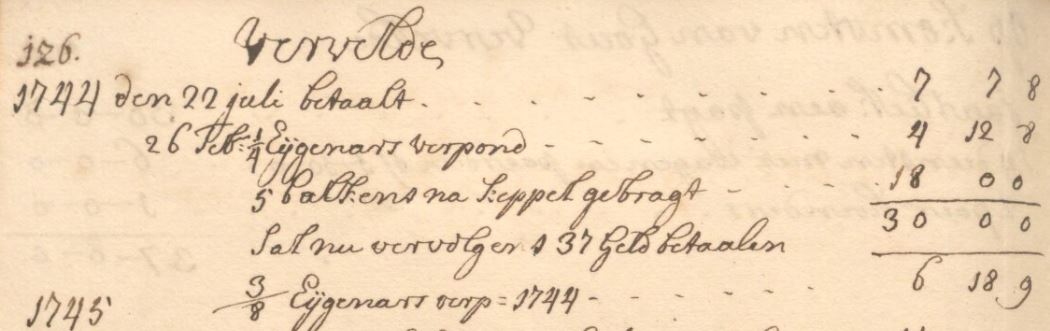 126. Vervolde
1744 den 22 juli betaalt . . . . . . . . . 7 7 8
26 Feb: 1/4 Eÿgenars verpond - - - - - - - - 4 12 8
5 balkens na keppel gebragt - - - - 18 0 0
30 0 0
Sal nu vervolgens 37 Geld betaalen
1745 3/8 Eÿgenars verp= 1744 - - - - - 6 18 9